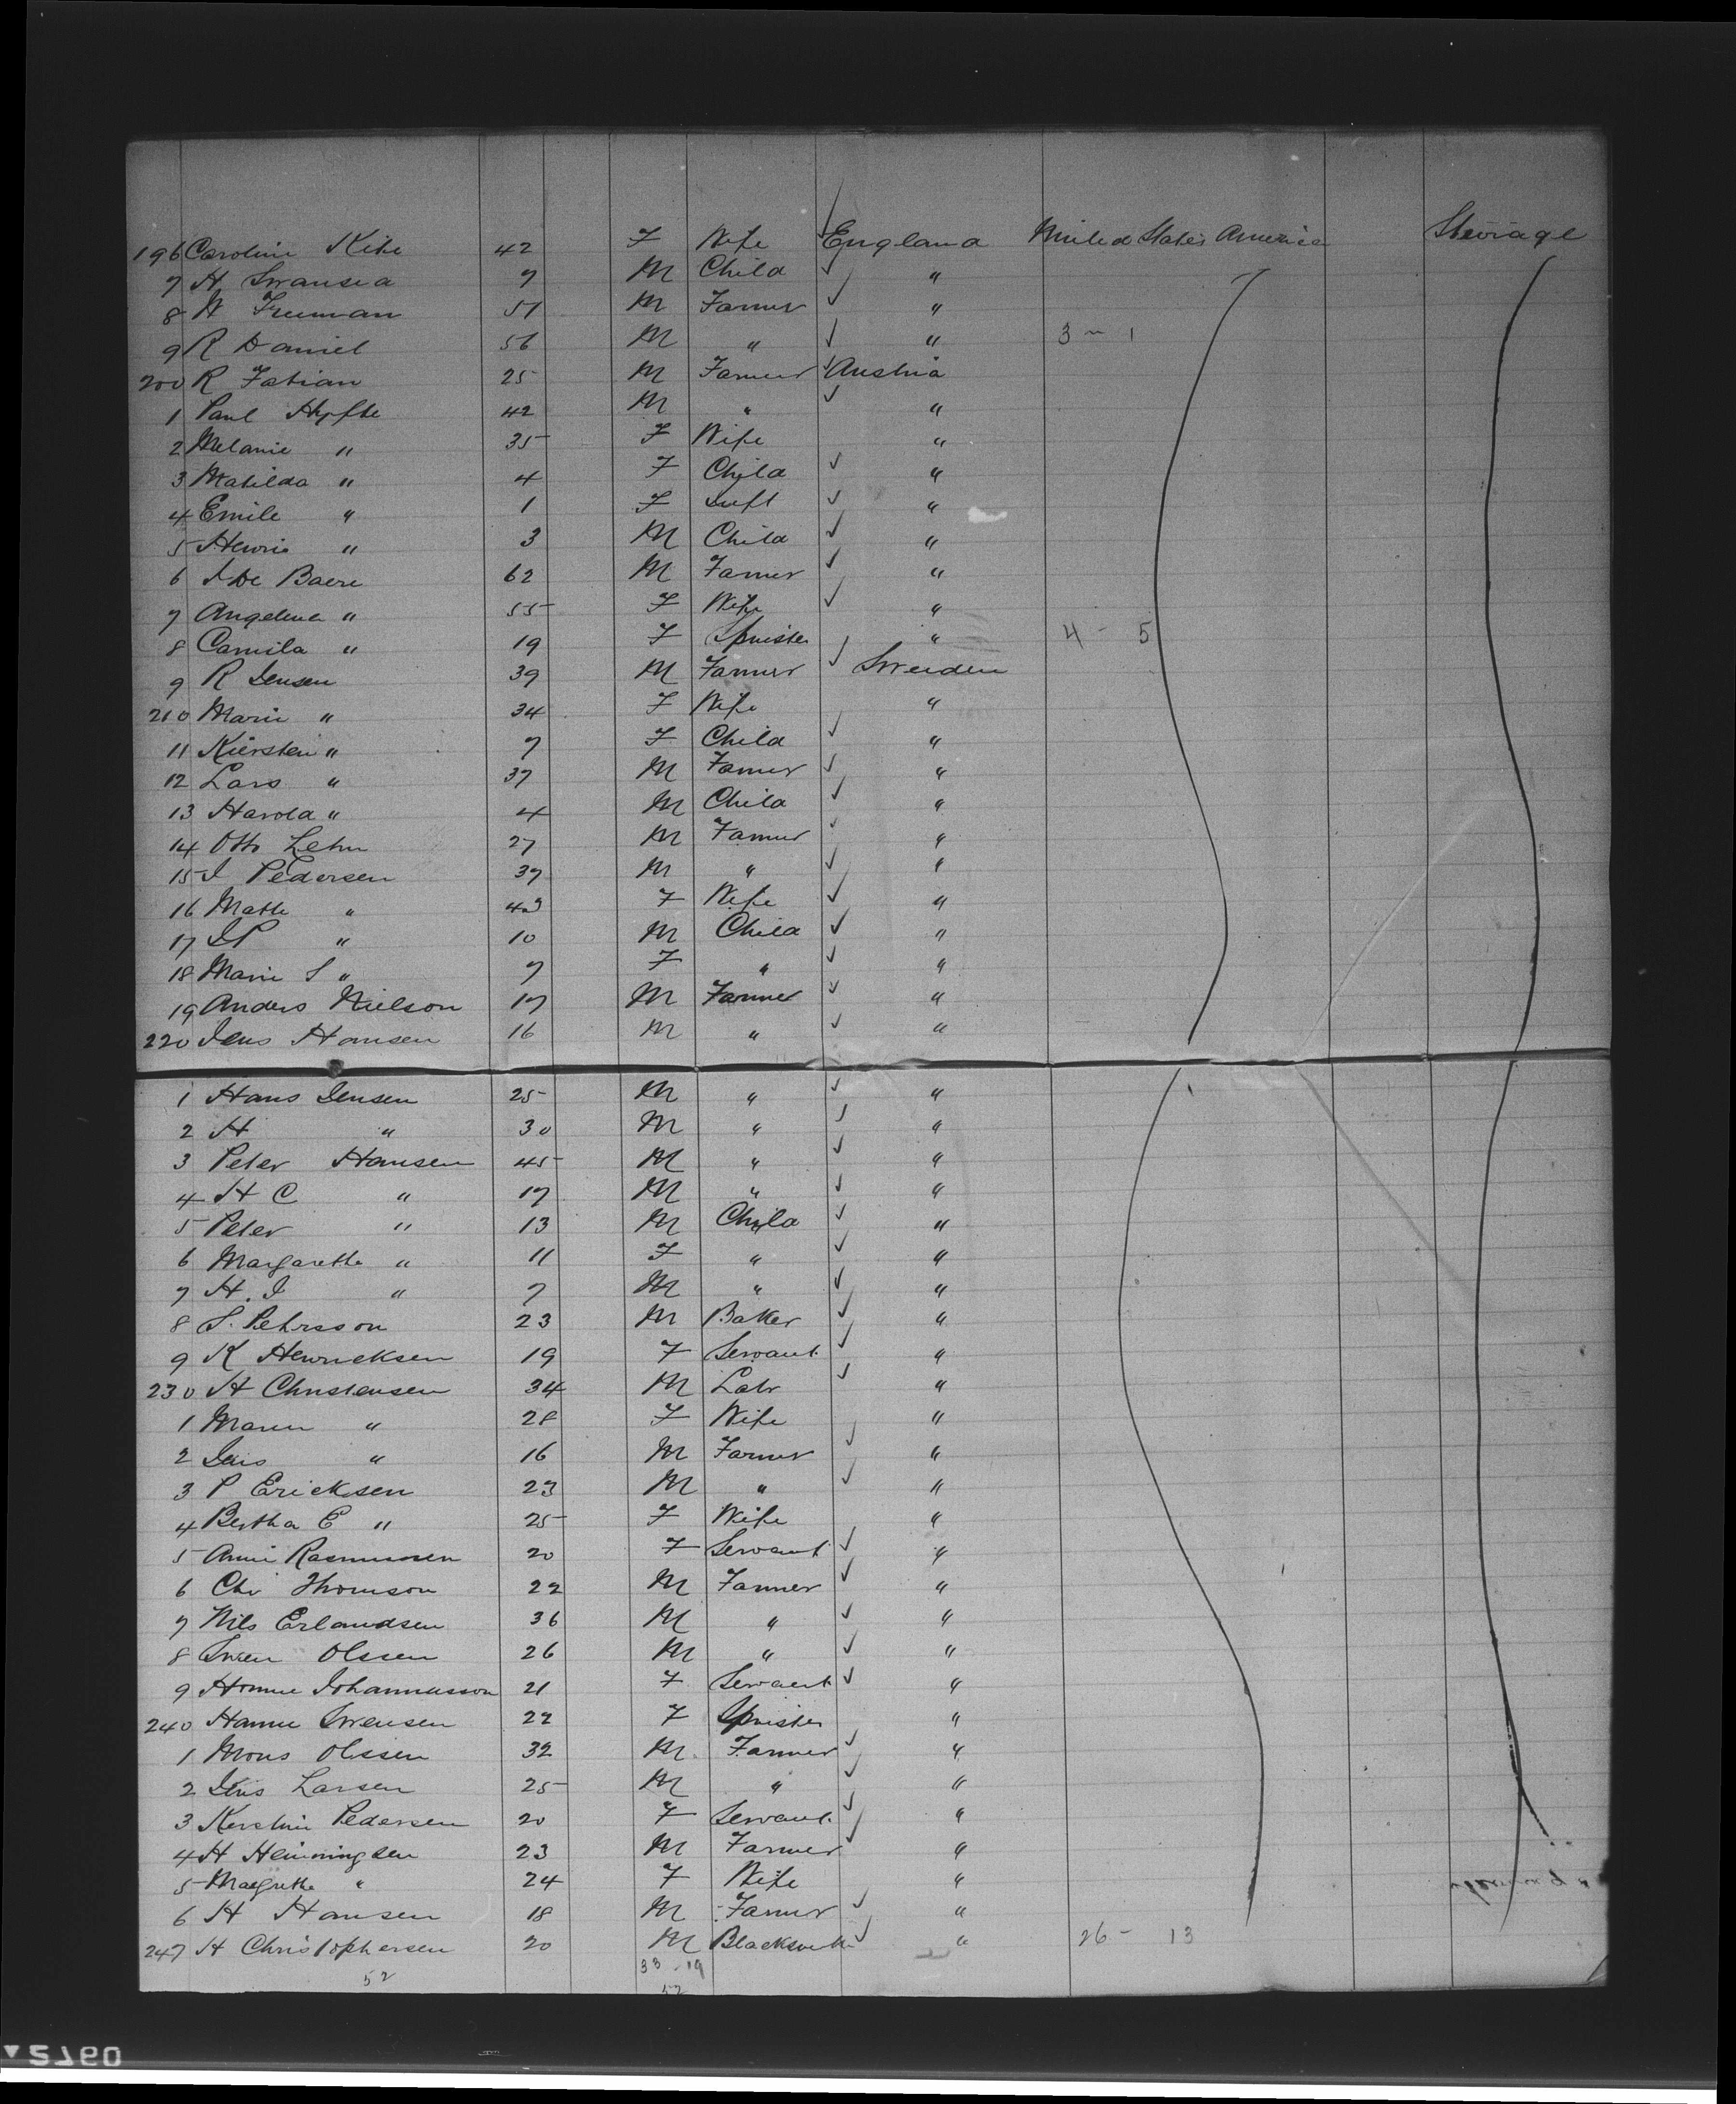 196 Caroline Kite 42 F Wife England United States America Steerage
7 H Swansea 7 M Child "
8 W Freeman 57 M Farmer "
9 R Daniel 56 M " " 3 - 1
200 R Fabian 25 M Farmer Austria
1 Paul Hyfte 42 M " "
2 Melanie " 35 F Wife "
3 Matilda " 4 F Child "
4 Emile " 1 F Inft "
5 Henrie " 3 M Child "
6 De Baere 62 M Farmer "
7 Angelina " 55 F Wife "
8 Camila " 19 F Spinster " 4 - 5
9 R Jensen 39 M Farmer Sweeden
210 Marie " 34 F Wife "
11 Kiersten " 7 F Child "
12 Lars " 37 M Farmer "
13 Harold " 4 M Child "
14 Otto Lehn 27 M Farmer "
15 I Pedersen 37 M " "
16 Matte " 43 F Wife "
17 " 10 M Child "
18 Marie S " 7 F " "
19 Anders Nielson 17 M Farmer "
220 Jens Hansen 16 M " "
1 Hans Jensen 25 M " "
2 H " 30 M " "
3 Peter Hansen 45 M " "
4 H C " 17 M " "
5 Peter " 13 M Child "
6 Margarethe " 11 F " "
7 H. I " 7 M " "
8 S. Pehrsson 23 M Baker "
9 K Henricksen 19 F Servant "
230 H Christensen 34 M Labr "
1 Maren " 28 F Wife "
2 Jens " 16 M Farmer "
3 P Ericksen 23 M " "
4 Bertha E " 25 F Wife "
5 Anne Rasmussen 20 F Servant "
6 Chr Thomson 22 M Farmer "
7 Nils Erlandsen 36 M " "
8 Swen Olssen 26 M " "
9 Hanne Johannasson 21 F Servant "
240 Hanne Swensen 22 F Spinster "
1 Mons Olssen 32 M Farmer "
2 Jens Larsen 25 M " "
3 Kerstine Pedersen 20 F Servant "
4 H Heinningsen 23 M Farmer "
5 Margrethe " 24 F Wife "
6 H Hansen 18 M Farmer "
247 H Christophersen 20 M Blacksmith " 26 - 13
52 33 - 19
52
0972